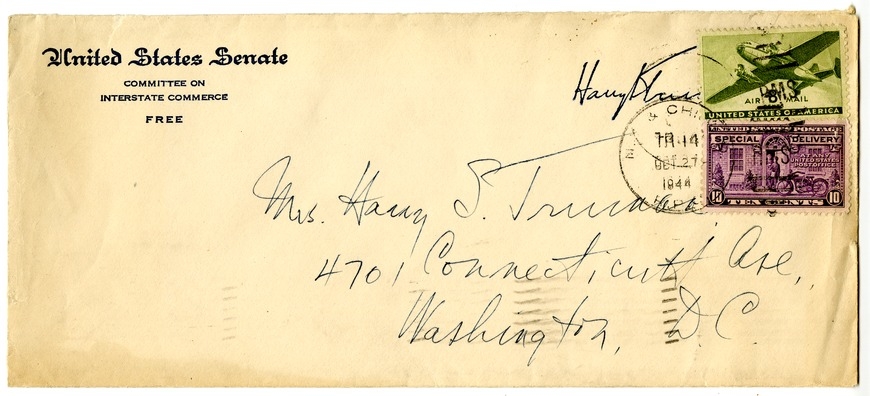 United States Senate
COMMITTEE ON
INTERSTATE COMMERCE
FREE
Harry
AIR MAIL
UNITED STATES OF AMERICA
N.Y. & CHI
TR 14
OCT 27
1944
R.P.O.
RMS
UNITED STATES POSTAGE
SPECIAL DELIVERY
UNITED STATES
POST OFFICE
10 TEN CENTS 10
Mrs. Harry S. Truman
4701 Connecticutt Ave,
Washington, D.C.